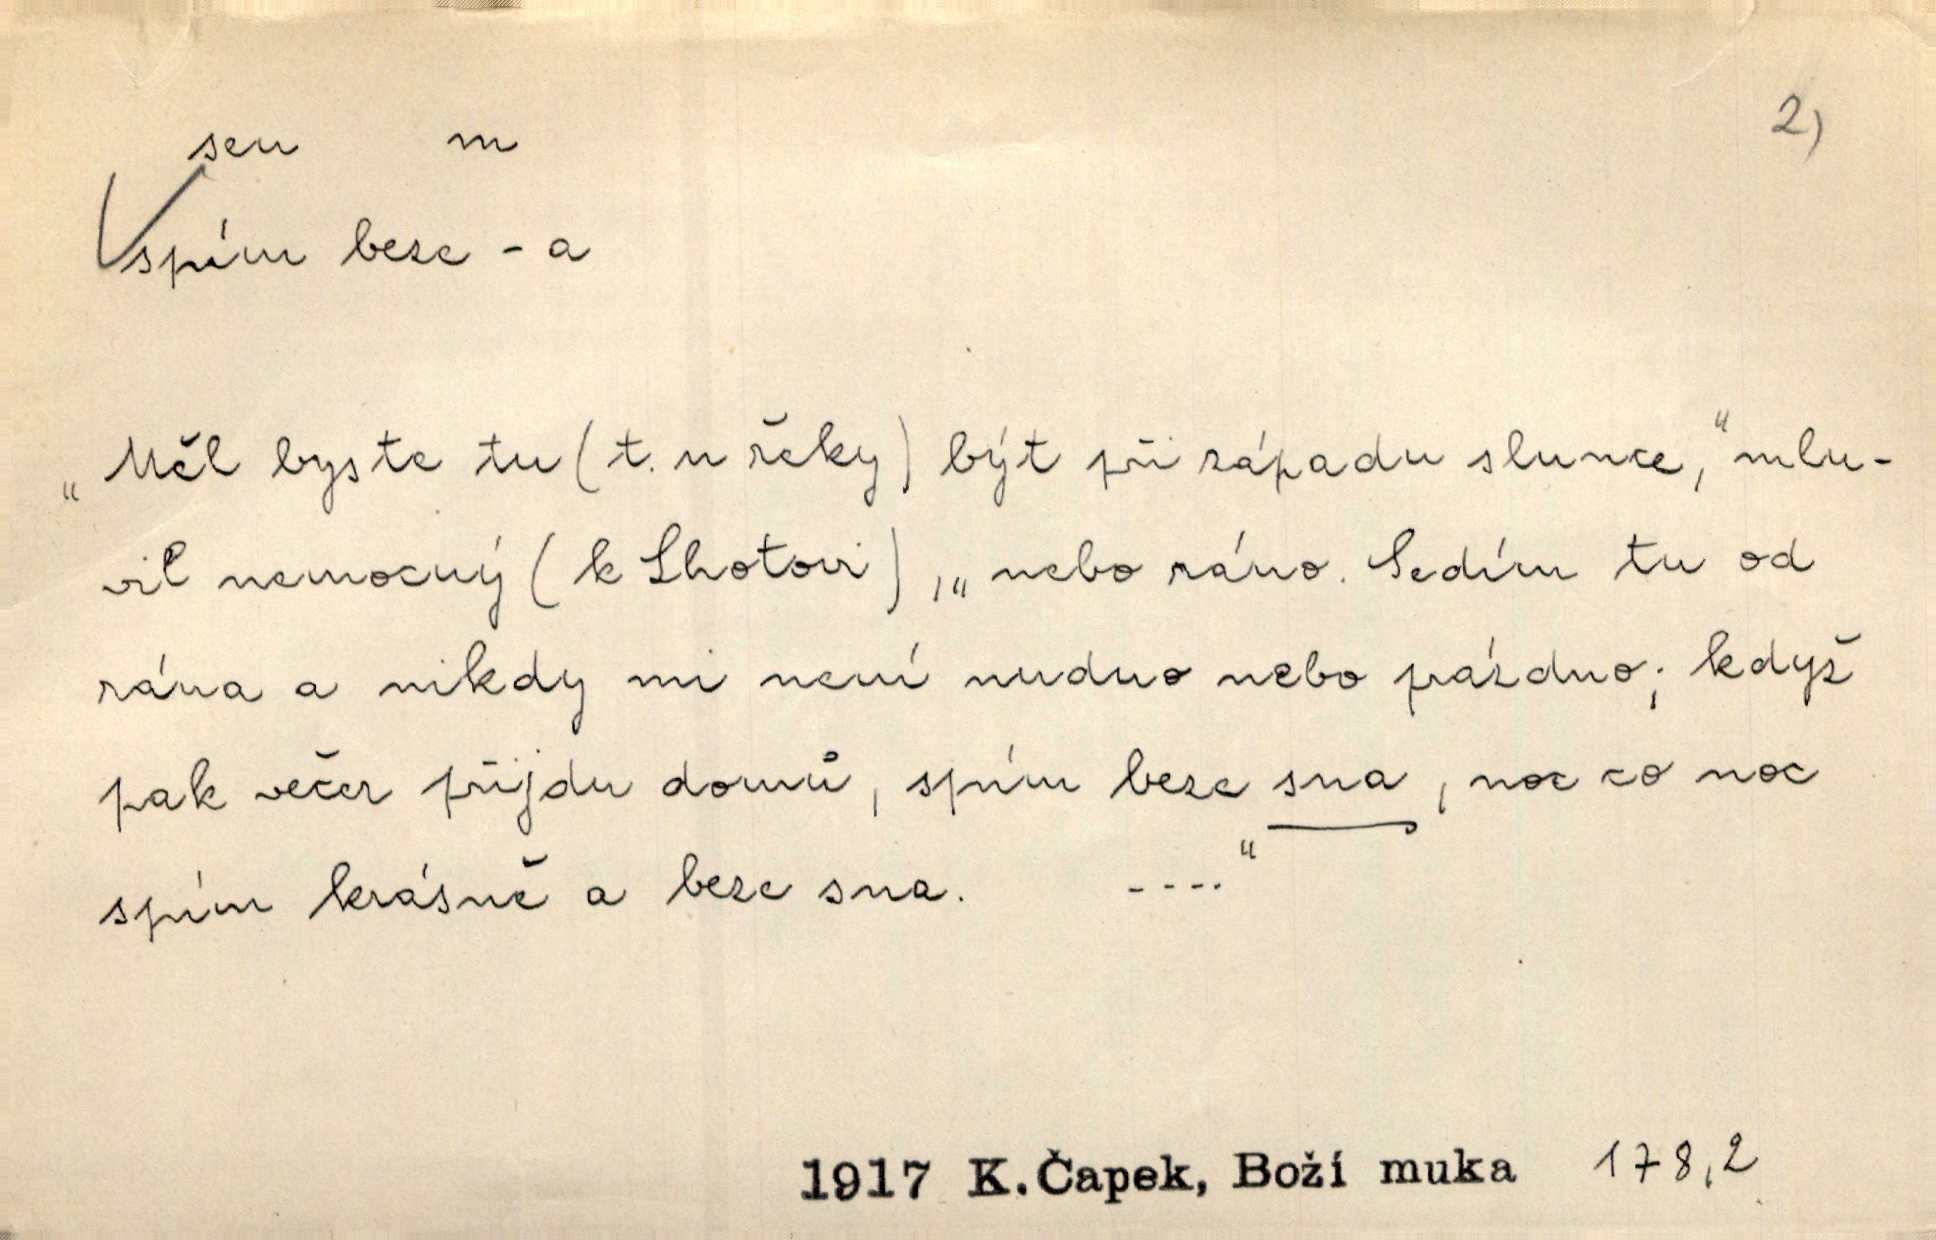 2)
sen m
spím beze - a
„Měl byste tu (t. u řeky) být při západu slunce,“ mlu-
vil nemocný (k Lhotovi), „nebo ráno. Sedím tu od
rána a nikdy mi není nudno nebo prázdno; když
pak večer přijdu domů, spím beze sna, noc co noc
spím krásně a beze sna. ----“
1917 K. Čapek, Boží muka 178,2